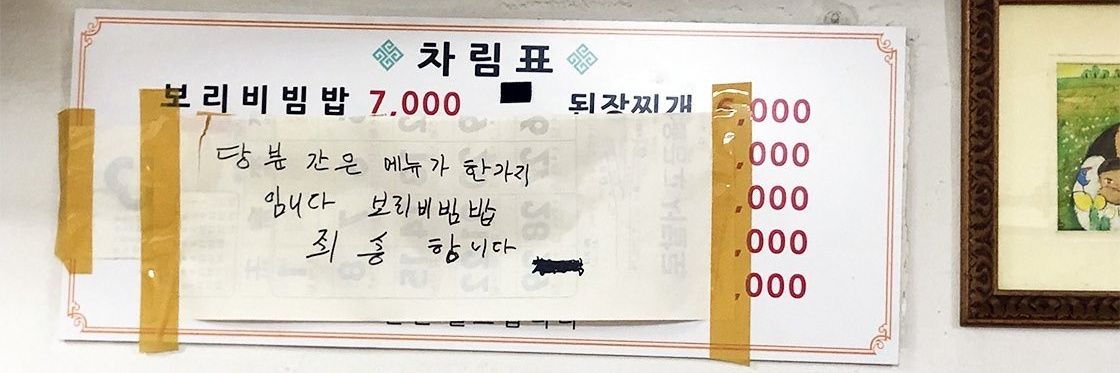 차림표
보리비빔밥 7,000 된장찌개 6,000
,000
,000
,000
,000
당분간은 메뉴가 한가지
입니다 보리비빔밥
죄송합니다